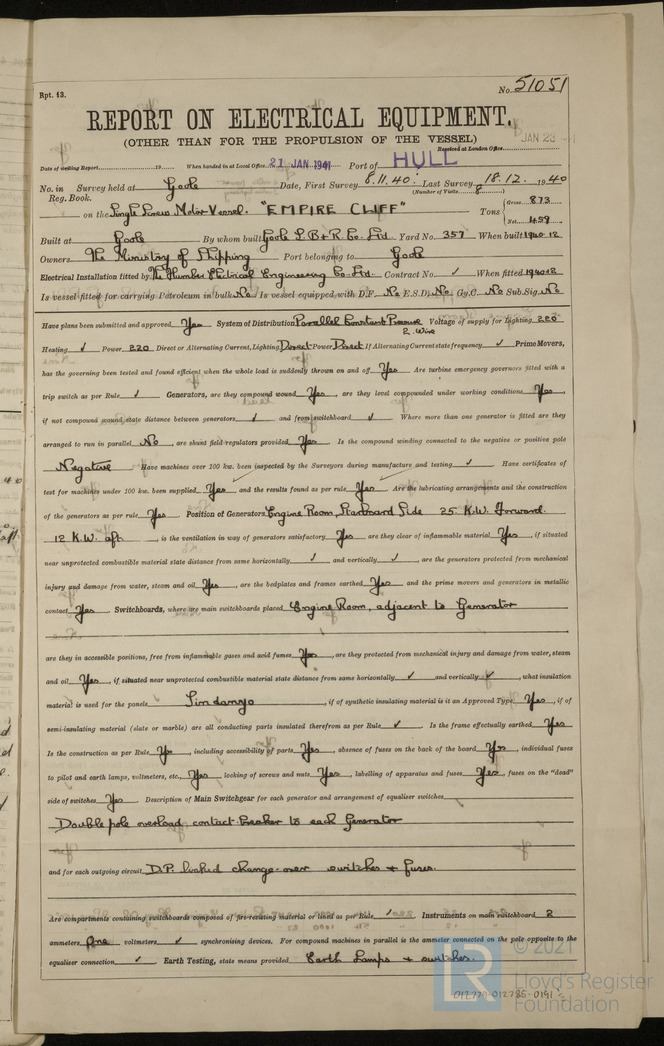 Rpt. 13.
No. 51051
REPORT ON ELECTRICAL EQUIPMENT.
(OTHER THAN FOR THE PROPULSION OF THE VESSEL)
JAN 23
Received at London Office
Date of writing Report 19 When handed in at Local Office 21 JAN 1941 Port of HULL
No. in Survey held at Goole Date, First Survey 8.11.40: Last Survey 18.12. 1940
Reg. Book. (Number of Visits 8)
on the Single Screw Motor Vessel. "EMPIRE CLIFF" Tons Gross 873 Net 459
Built at Goole By whom built Goole S.B & R. Co. Ltd. Yard No. 357 When built 1940.12
Owners The Ministry of Shipping Port belonging to Goole
Electrical Installation fitted by The Humber Electrical Engineering Co. Ltd. Contract No. ✓ When fitted 1940.12
Is vessel fitted for carrying Petroleum in bulk No Is vessel equipped with D.F. No E.S.D. No Gy.C. No Sub.Sig. No
Have plans been submitted and approved Yes System of Distribution Parallel Constant Pressure 2. Wire Voltage of supply for Lighting 220
Heating ✓ Power 220 Direct or Alternating Current, Lighting Direct Power Direct If Alternating Current state frequency ✓ Prime Movers,
has the governing been tested and found efficient when the whole load is suddenly thrown on and off Yes Are turbine emergency governors fitted with a
trip switch as per Rule ✓ Generators, are they compound wound Yes, are they level compounded under working conditions Yes,
if not compound wound state distance between generators ✓ and from switchboard ✓ Where more than one generator is fitted are they
arranged to run in parallel No, are shunt field regulators provided Yes. Is the compound winding connected to the negative or positive pole
Negative Have machines over 100 kw. been inspected by the Surveyors during manufacture and testing ✓ Have certificates of
test for machines under 100 kw. been supplied Yes and the results found as per rule Yes Are the lubricating arrangements and the construction
of the generators as per rule Yes Position of Generators Engine Room, Starboard Side 25 K.W. Forward.
12 K.W. aft, is the ventilation in way of generators satisfactory Yes are they clear of inflammable material Yes, if situated
near unprotected combustible material state distance from same horizontally ✓ and vertically ✓, are the generators protected from mechanical
injury and damage from water, steam and oil Yes, are the bedplates and frames earthed Yes and the prime movers and generators in metallic
contact Yes Switchboards, where are main switchboards placed Engine Room, adjacent to Generator
are they in accessible positions, free from inflammable gases and acid fumes Yes, are they protected from mechanical injury and damage from water, steam
and oil Yes, if situated near unprotected combustible material state distance from same horizontally ✓ and vertically ✓, what insulation
material is used for the panels Sindanyo, if of synthetic insulating material is it an Approved Type Yes, if of
semi-insulating material (slate or marble) are all conducting parts insulated therefrom as per Rule ✓ Is the frame effectually earthed Yes
Is the construction as per Rule Yes, including accessibility of parts Yes, absence of fuses on the back of the board Yes, individual fuses
to pilot and earth lamps, voltmeters, etc., Yes locking of screws and nuts Yes, labelling of apparatus and fuses Yes, fuses on the "dead"
side of switches Yes Description of Main Switchgear for each generator and arrangement of equaliser switches
Double pole overload contact breaker to each Generator
and for each outgoing circuit D.P. linked change-over switches & fuses.
Are compartments containing switchboards composed of fire-resisting material or lined as per Rule ✓ Instruments on main switchboard 2
ammeters One voltmeters ✓ synchronising devices. For compound machines in parallel is the ammeter connected on the pole opposite to the
equaliser connection ✓ Earth Testing, state means provided Earth Lamps & switches.
© 2021
LR Lloyd's Register
Foundation
012779-012785-0191